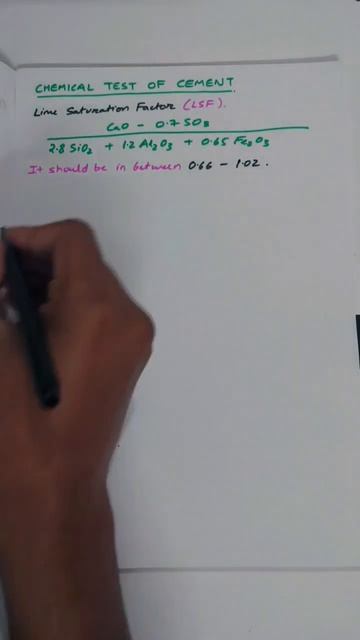 CHEMICAL TEST OF CEMENT.
Lime Saturation Factor (LSF).
CaO - 0.7 SO3
2.8 SiO2 + 1.2 Al2O3 + 0.65 Fe2O3
It should be in between 0.66 - 1.02.